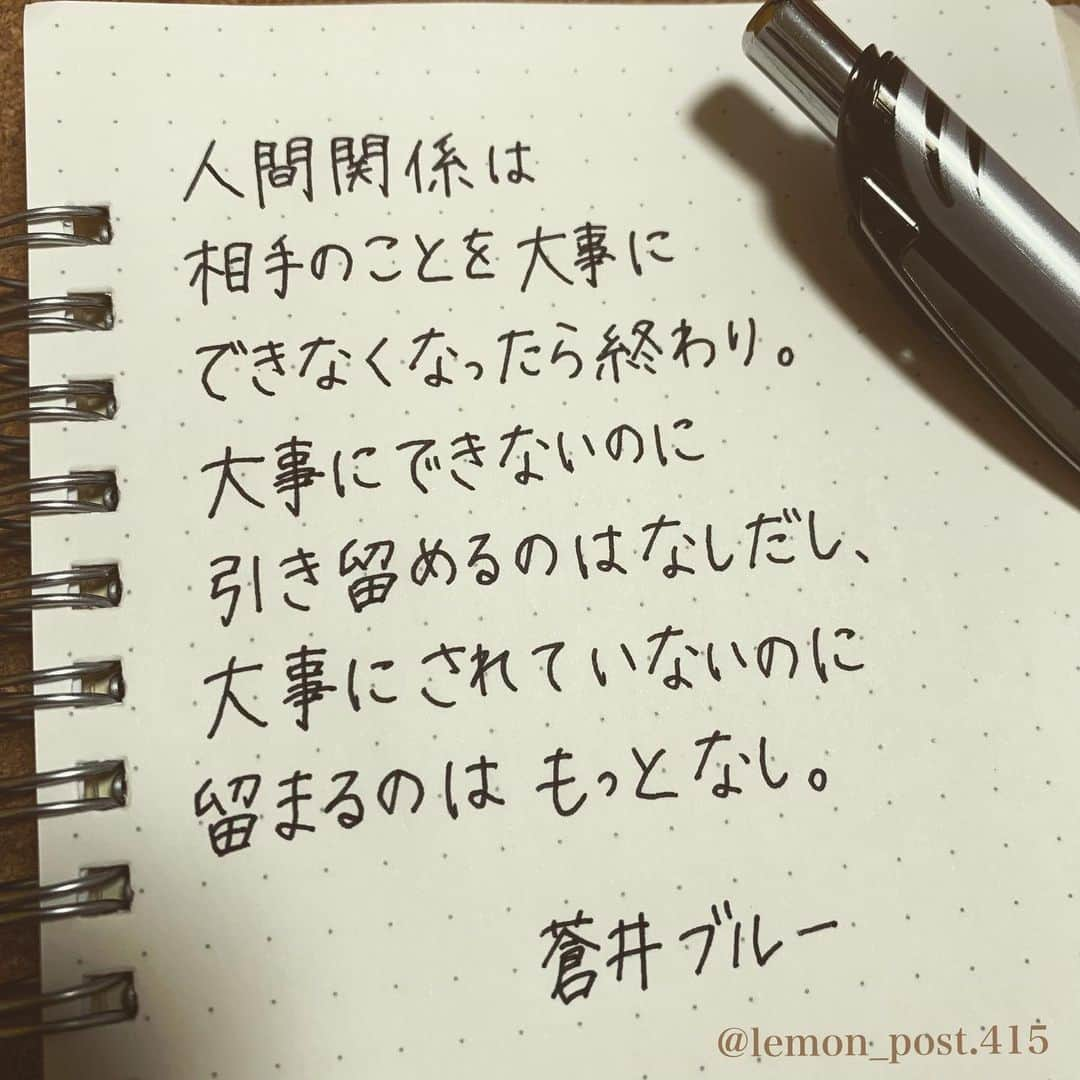 人間関係は
相手のことを大事に
できなくなったら終わり。
大事にできないのに
引き留めるのはなしだし、
大事にされていないのに
留まるのは もっとなし。
蒼井ブルー
@lemon_post.415